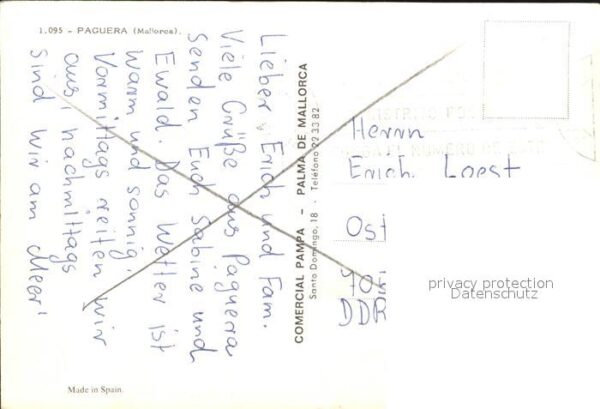 1.095 – PAGUERA (Mallorca).
Lieber Erich und Fam.
Viele Grüße aus Paguera
senden Euch Sabine und
Ewald. Das Wetter ist
warm und sonnig.
Vormittags reiten wir
aus, nachmittags
sind wir am Meer!
COMERCIAL PAMPA – PALMA DE MALLORCA
Santo Domingo, 18 · Teléfono 22 33 82
Herrn
Erich Loest
Ost
DDR
privacy protection
Datenschutz
Made in Spain.